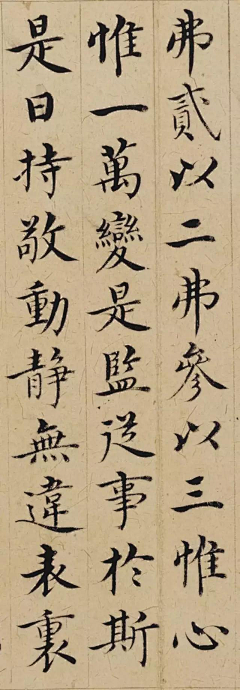 弗貳以二弗參以三惟心
惟一萬變是監從事於斯
是曰持敬動静無違表裏